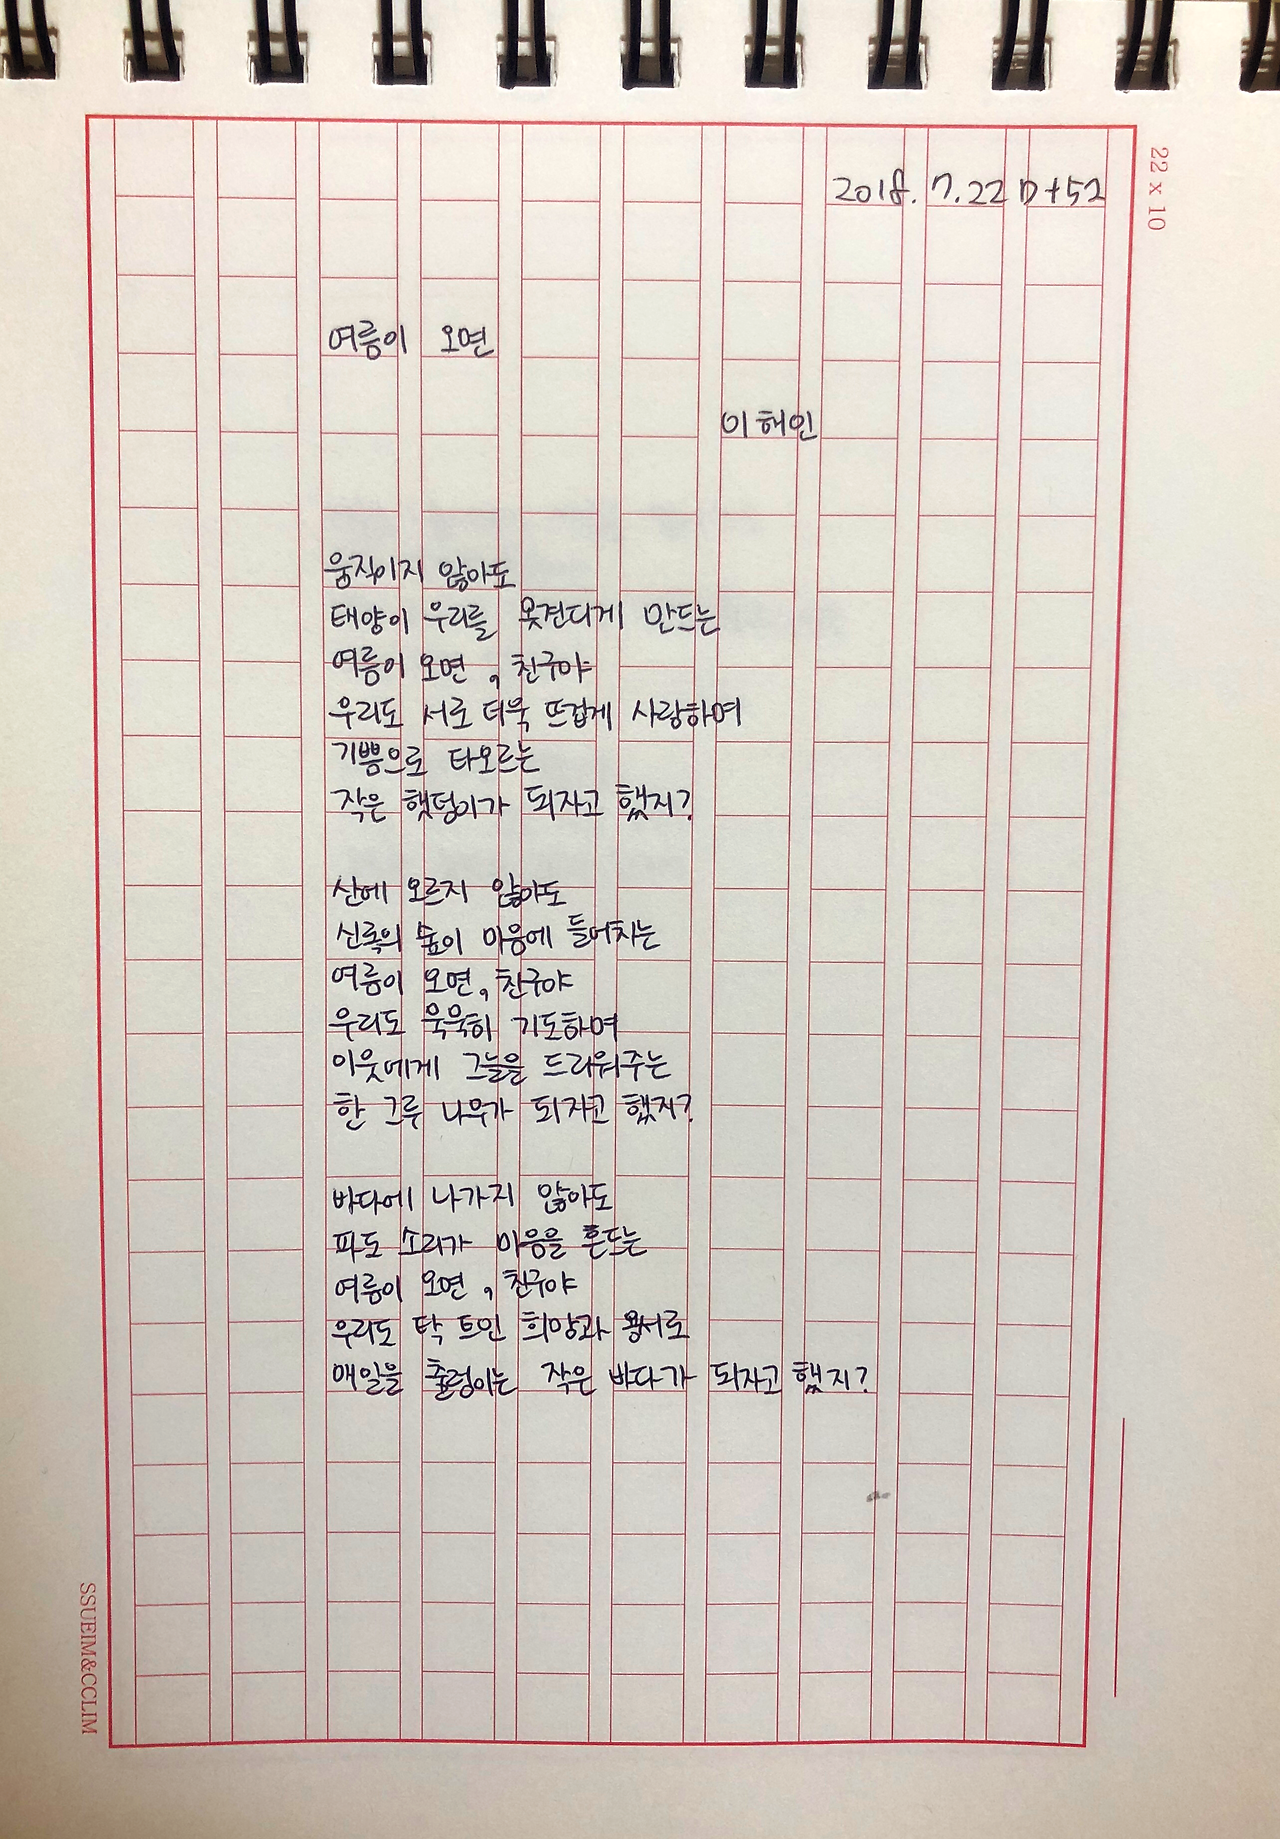 22 x 10
2018. 7. 22 D+52
여름이 오면
이해인
움직이지 않아도
태양이 우리를 못견디게 만드는
여름이 오면, 친구야
우리도 서로 더욱 뜨겁게 사랑하며
기쁨으로 타오르는
작은 햇덩이가 되자고 했지?
산에 오르지 않아도
신록의 숲이 마음에 들어차는
여름이 오면, 친구야
우리도 묵묵히 기도하며
이웃에게 그늘을 드리워주는
한 그루 나무가 되자고 했지?
바다에 나가지 않아도
파도 소리가 마음을 흔드는
여름이 오면, 친구야
우리도 탁 트인 희망과 용서로
매일을 출렁이는 작은 바다가 되자고 했지?
SSUEIM&CCLIM